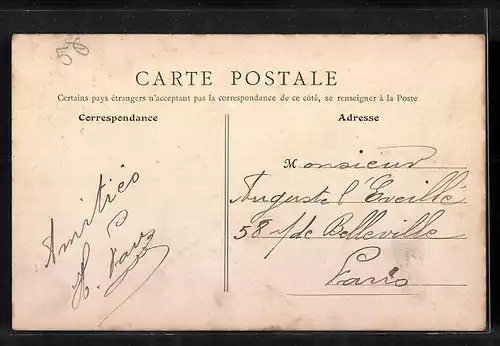 58
CARTE POSTALE
Certains pays étrangers n'acceptant pas la correspondance de ce côté, se renseigner à la Poste
Correspondance
Adresse
Amitiés
H.
Monsieur
Auguste l'Eveillé
58 r de Belleville
Paris